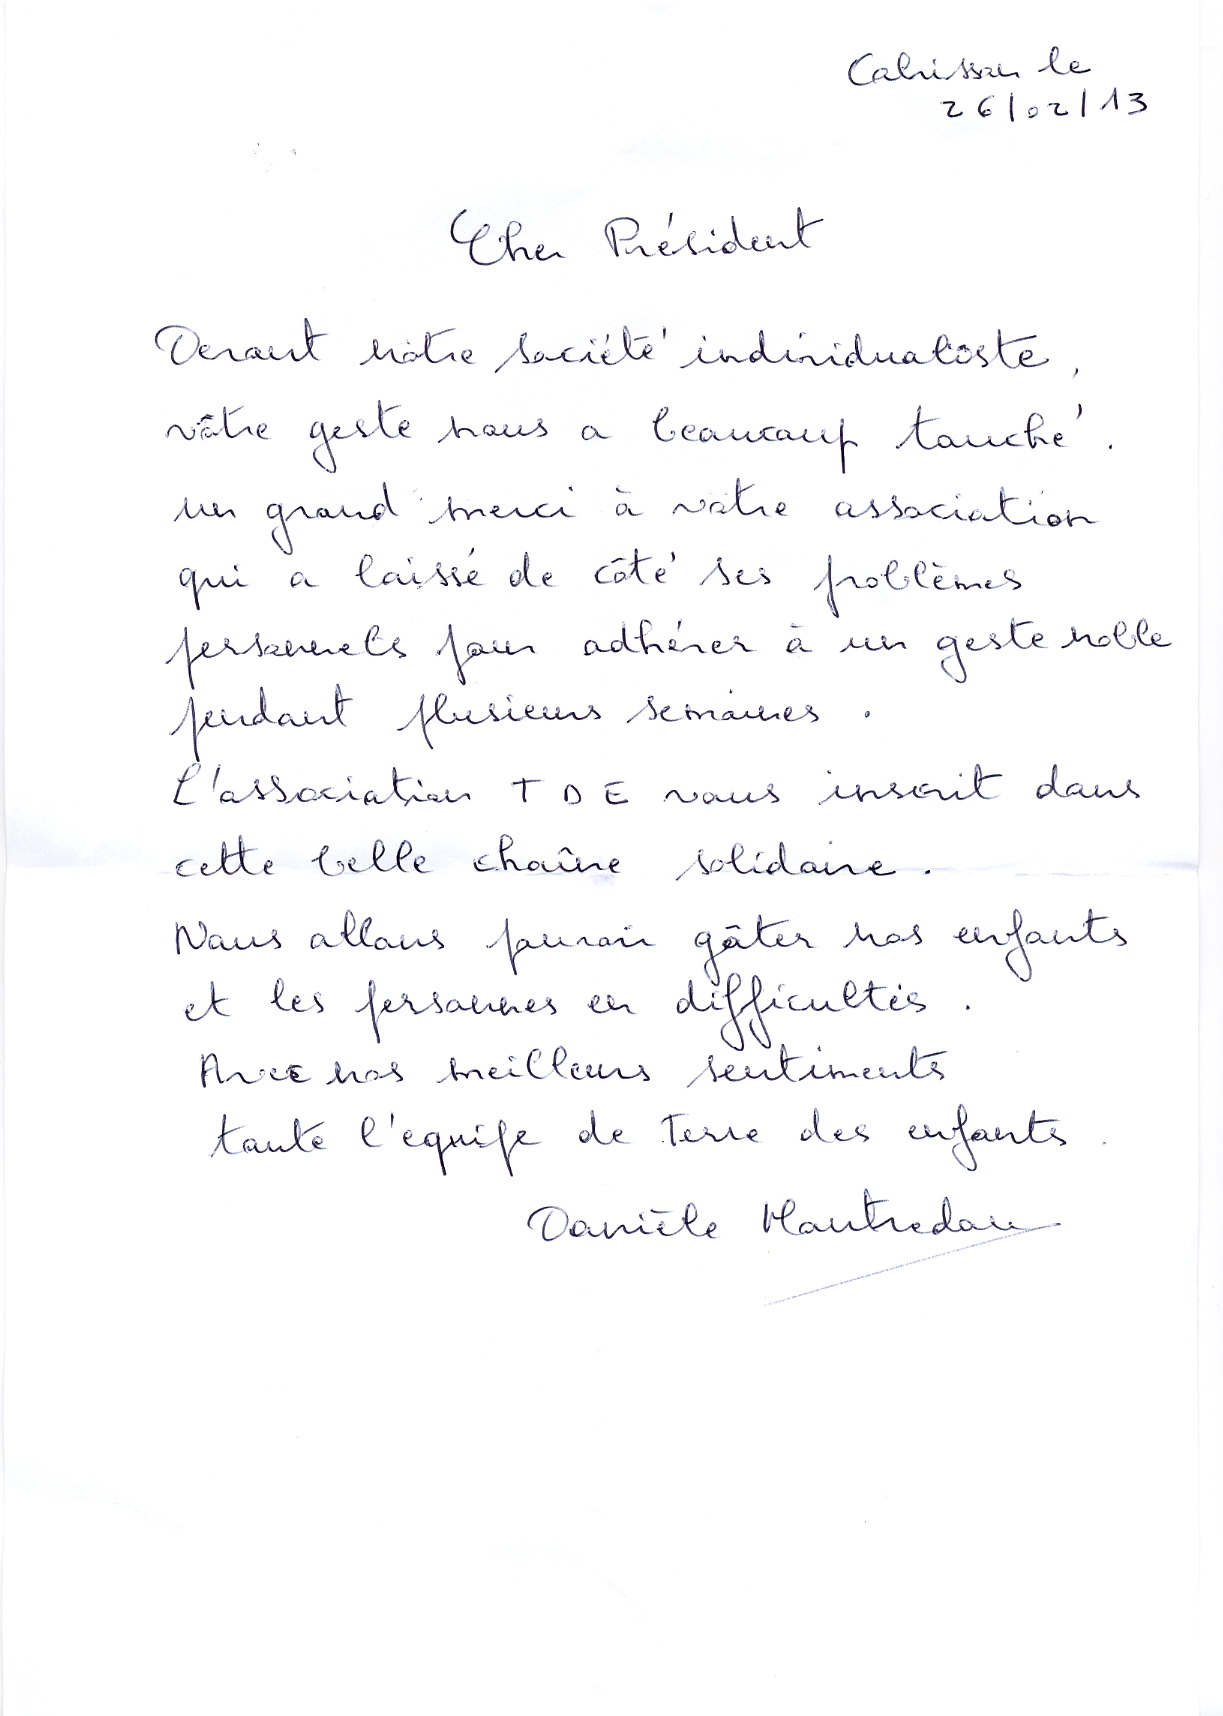 Calvisson le
26/02/13
Cher Président
Devant nôtre société individualiste,
vôtre geste nous a beaucoup touché.
un grand merci à votre association
qui a laissé de côté ses problèmes
personnels pour adhérer à un geste noble
pendant plusieurs semaines.
L'association TDE vous inscrit dans
cette belle chaîne solidaire.
Nous allons pouvoir gâter nos enfants
et les personnes en difficultés.
Avec nos meilleurs sentiments
toute l'equipe de Terre des enfants.
Danièle